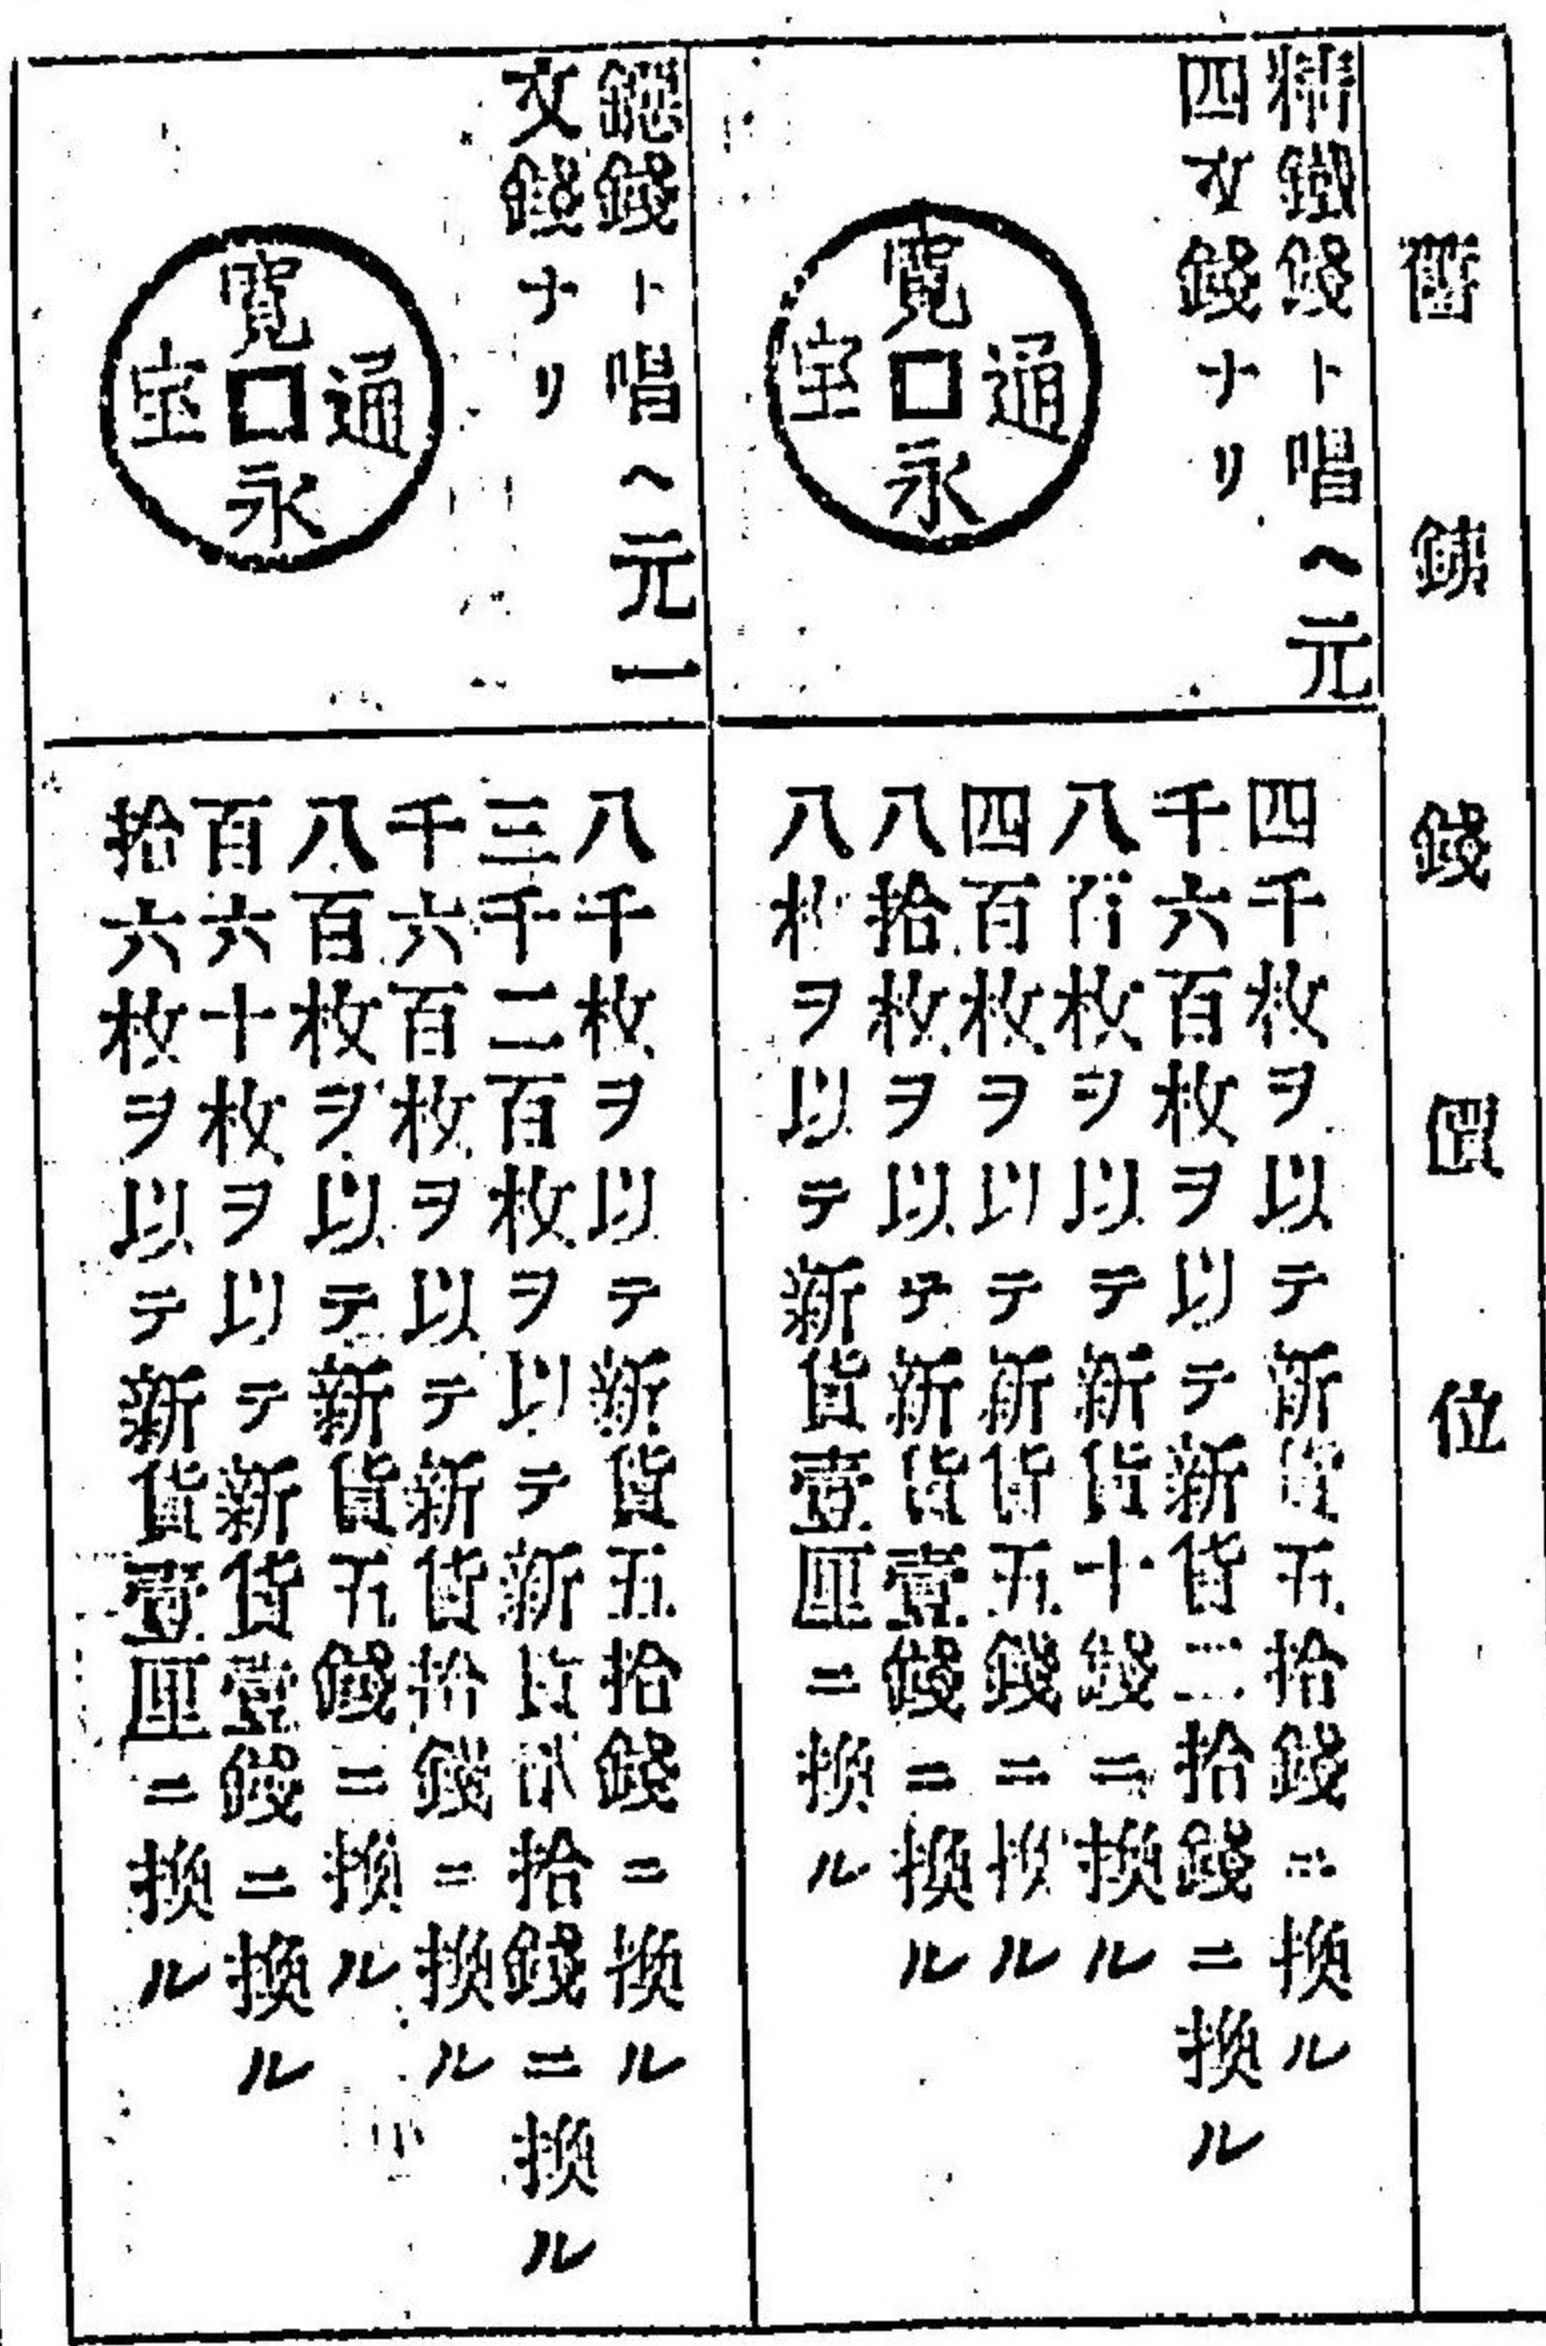 舊銕錢價位
精鐵錢ト唱ヘ元
四文錢ナリ
寛永通宝
四千枚ヲ以テ新貨五拾錢ニ換ル
千六百枚ヲ以テ新貨二拾錢ニ換ル
八百枚ヲ以テ新貨十錢ニ換ル
四百枚ヲ以テ新貨五錢ニ換ル
八拾枚ヲ以テ新貨壹錢ニ換ル
八枚ヲ以テ新貨壹厘ニ換ル
錢ト唱ヘ元一
文錢ナリ
寛永通宝
八千枚ヲ以テ新貨五拾錢ニ換ル
三千二百枚ヲ以テ新貨貳拾錢ニ換ル
千六百枚ヲ以テ新貨拾錢ニ換ル
八百枚ヲ以テ新貨五錢ニ換ル
百六十枚ヲ以テ新貨壹錢ニ換ル
拾六枚ヲ以テ新貨壹厘ニ換ル